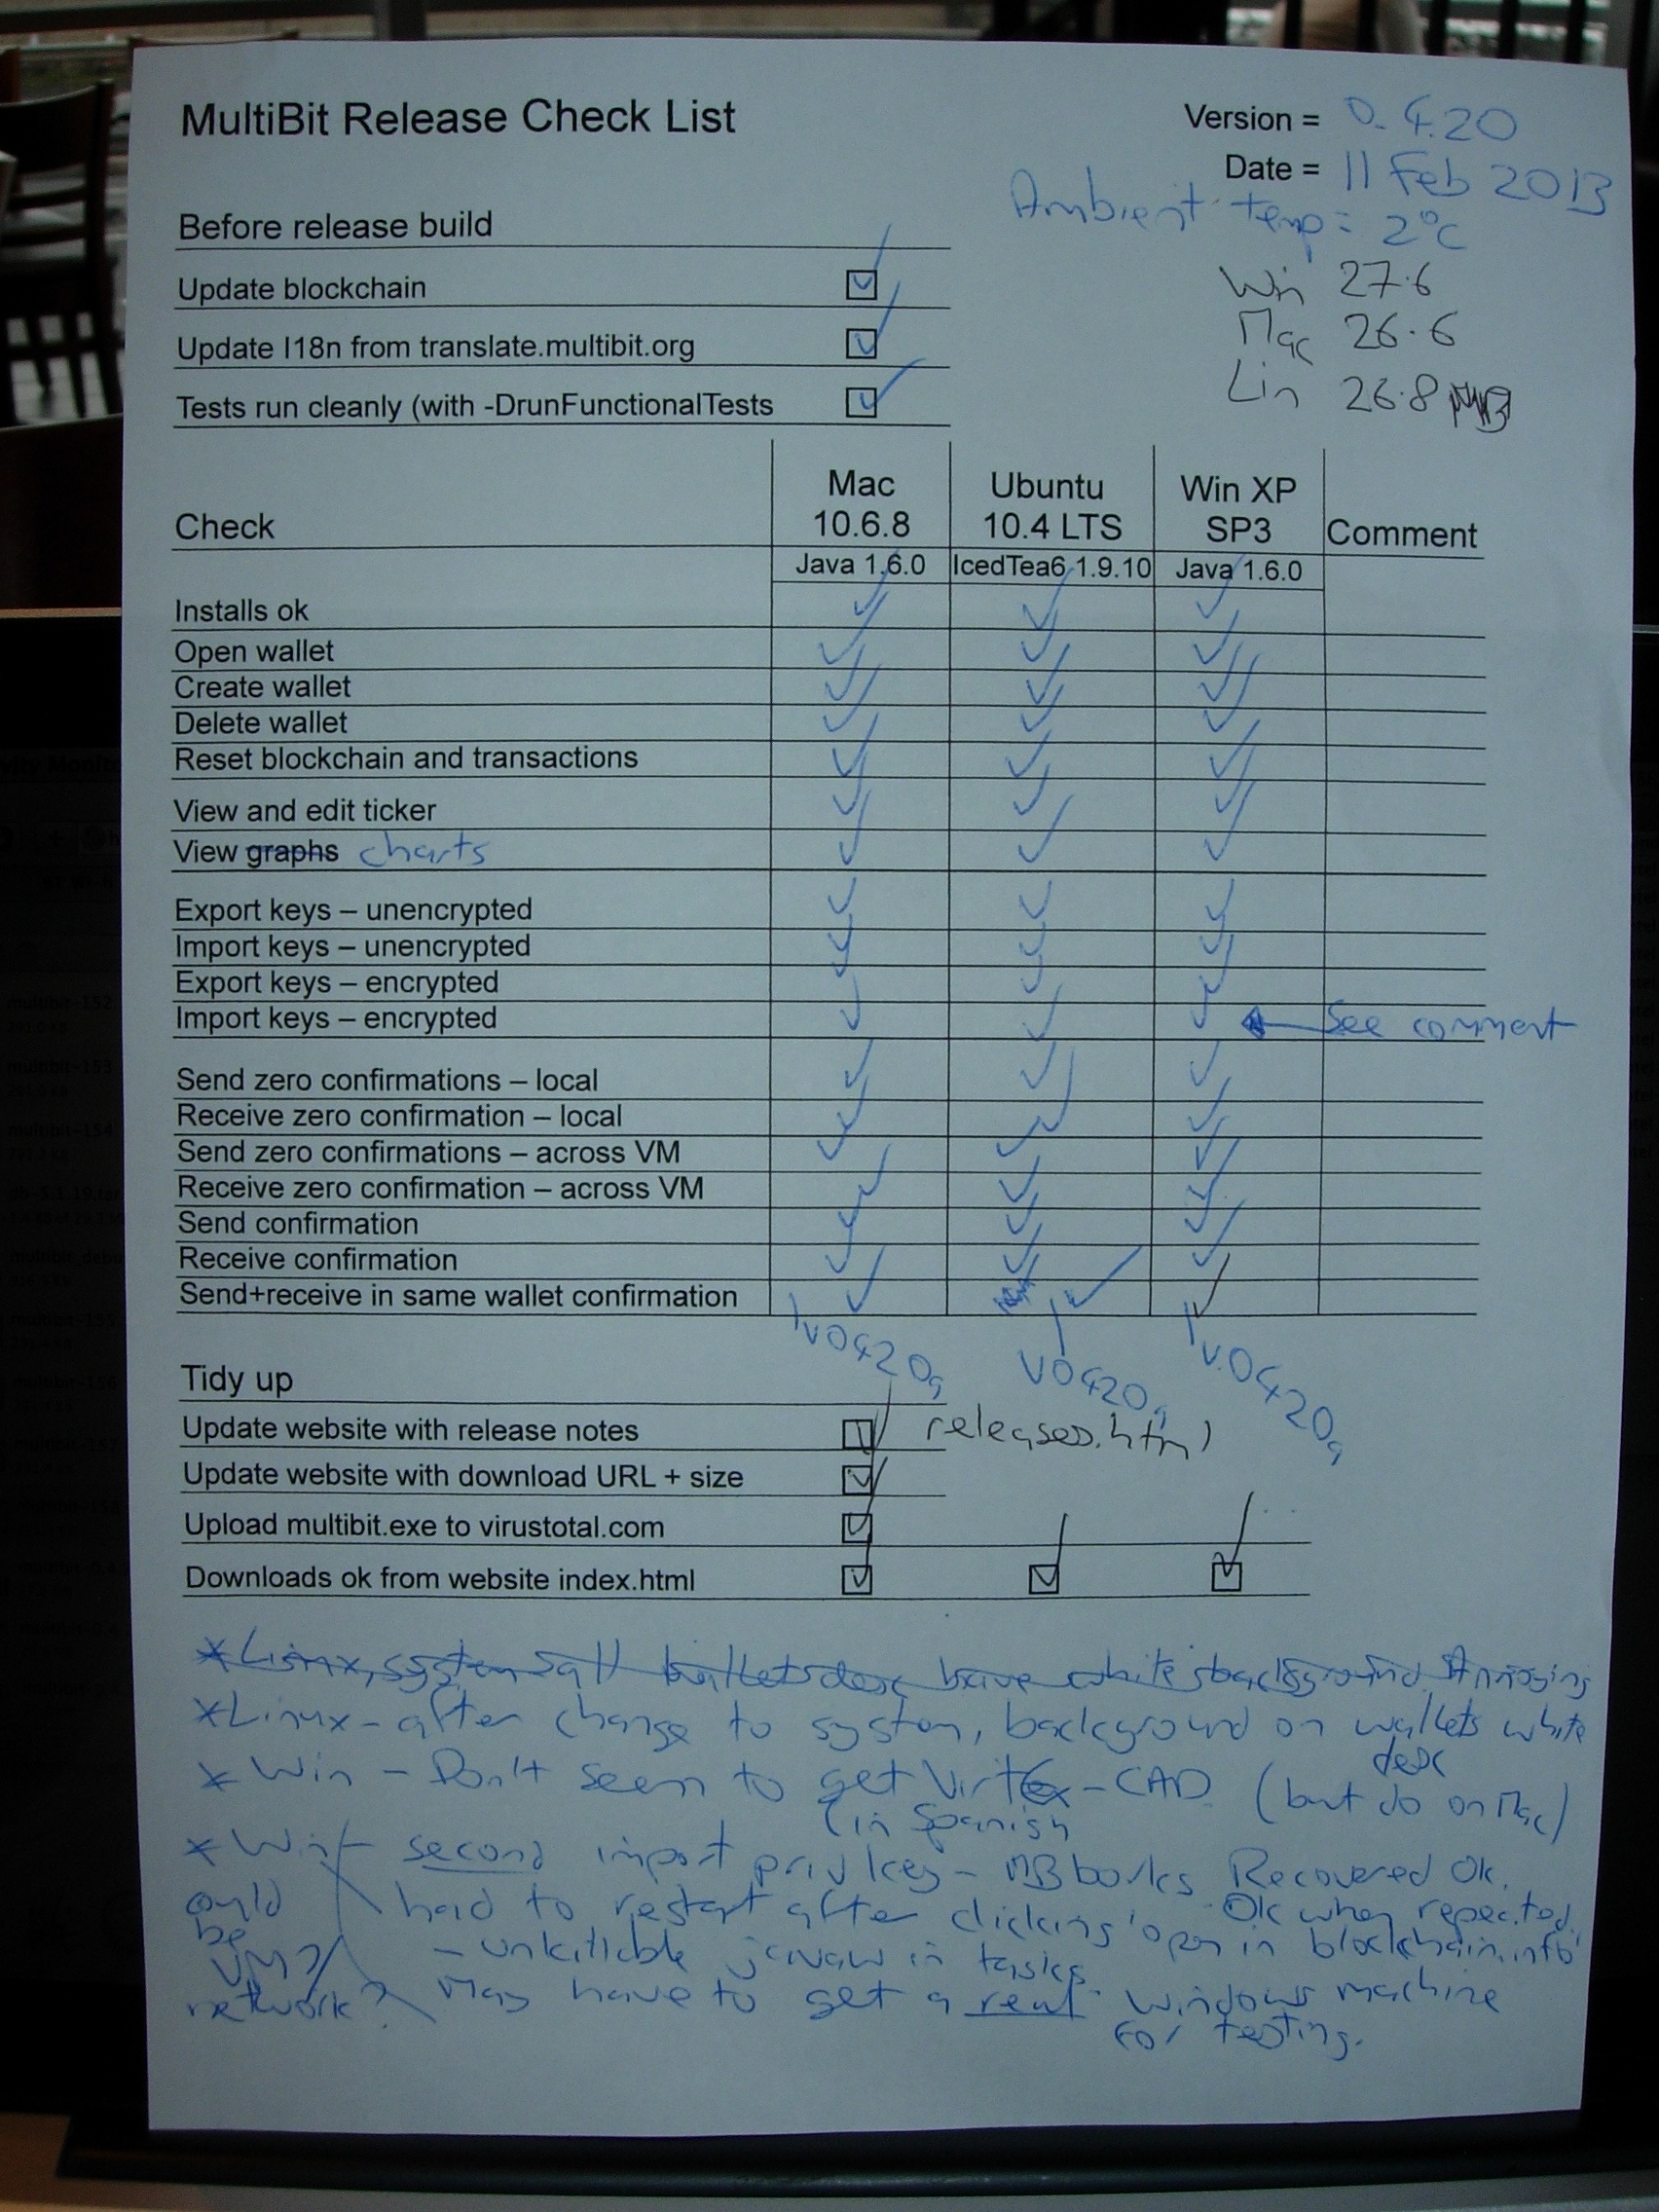 MultiBit Release Check List
Version = 0.4.20
Date = 11 Feb 2013
Ambient temp = 2°C
Win 27.6
Mac 26.6
Lin 26.8 MB
Before release build
Update blockchain
Update I18n from translate.multibit.org
Tests run cleanly (with -DrunFunctionalTests
Check Mac 10.6.8 Ubuntu 10.4 LTS Win XP SP3 Comment
Java 1.6.0 IcedTea6 1.9.10 Java 1.6.0
Installs ok
Open wallet
Create wallet
Delete wallet
Reset blockchain and transactions
View and edit ticker
View graphs charts
Export keys – unencrypted
Import keys – unencrypted
Export keys – encrypted
Import keys – encrypted See comment
Send zero confirmations – local
Receive zero confirmation – local
Send zero confirmations – across VM
Receive zero confirmation – across VM
Send confirmation
Receive confirmation
Send+receive in same wallet confirmation
v0420a v0420a v.0420a
Tidy up
Update website with release notes releases.html
Update website with download URL + size
Upload multibit.exe to virustotal.com
Downloads ok from website index.html
*Linux, system have white background Annoying
*Linux - after change to system, background on wallets white
desc
* Win - Don't seem to get VirtEx-CAD (but do on Mac)
(in Spanish
* Win - second import priv key - MB borks Recovered Ok.
Ok when repeated.
could be VM? network?
had to restart after clicking 'open in blockchain.info'
- unkillable javaw in tasks.
May have to get a real windows machine
for testing.